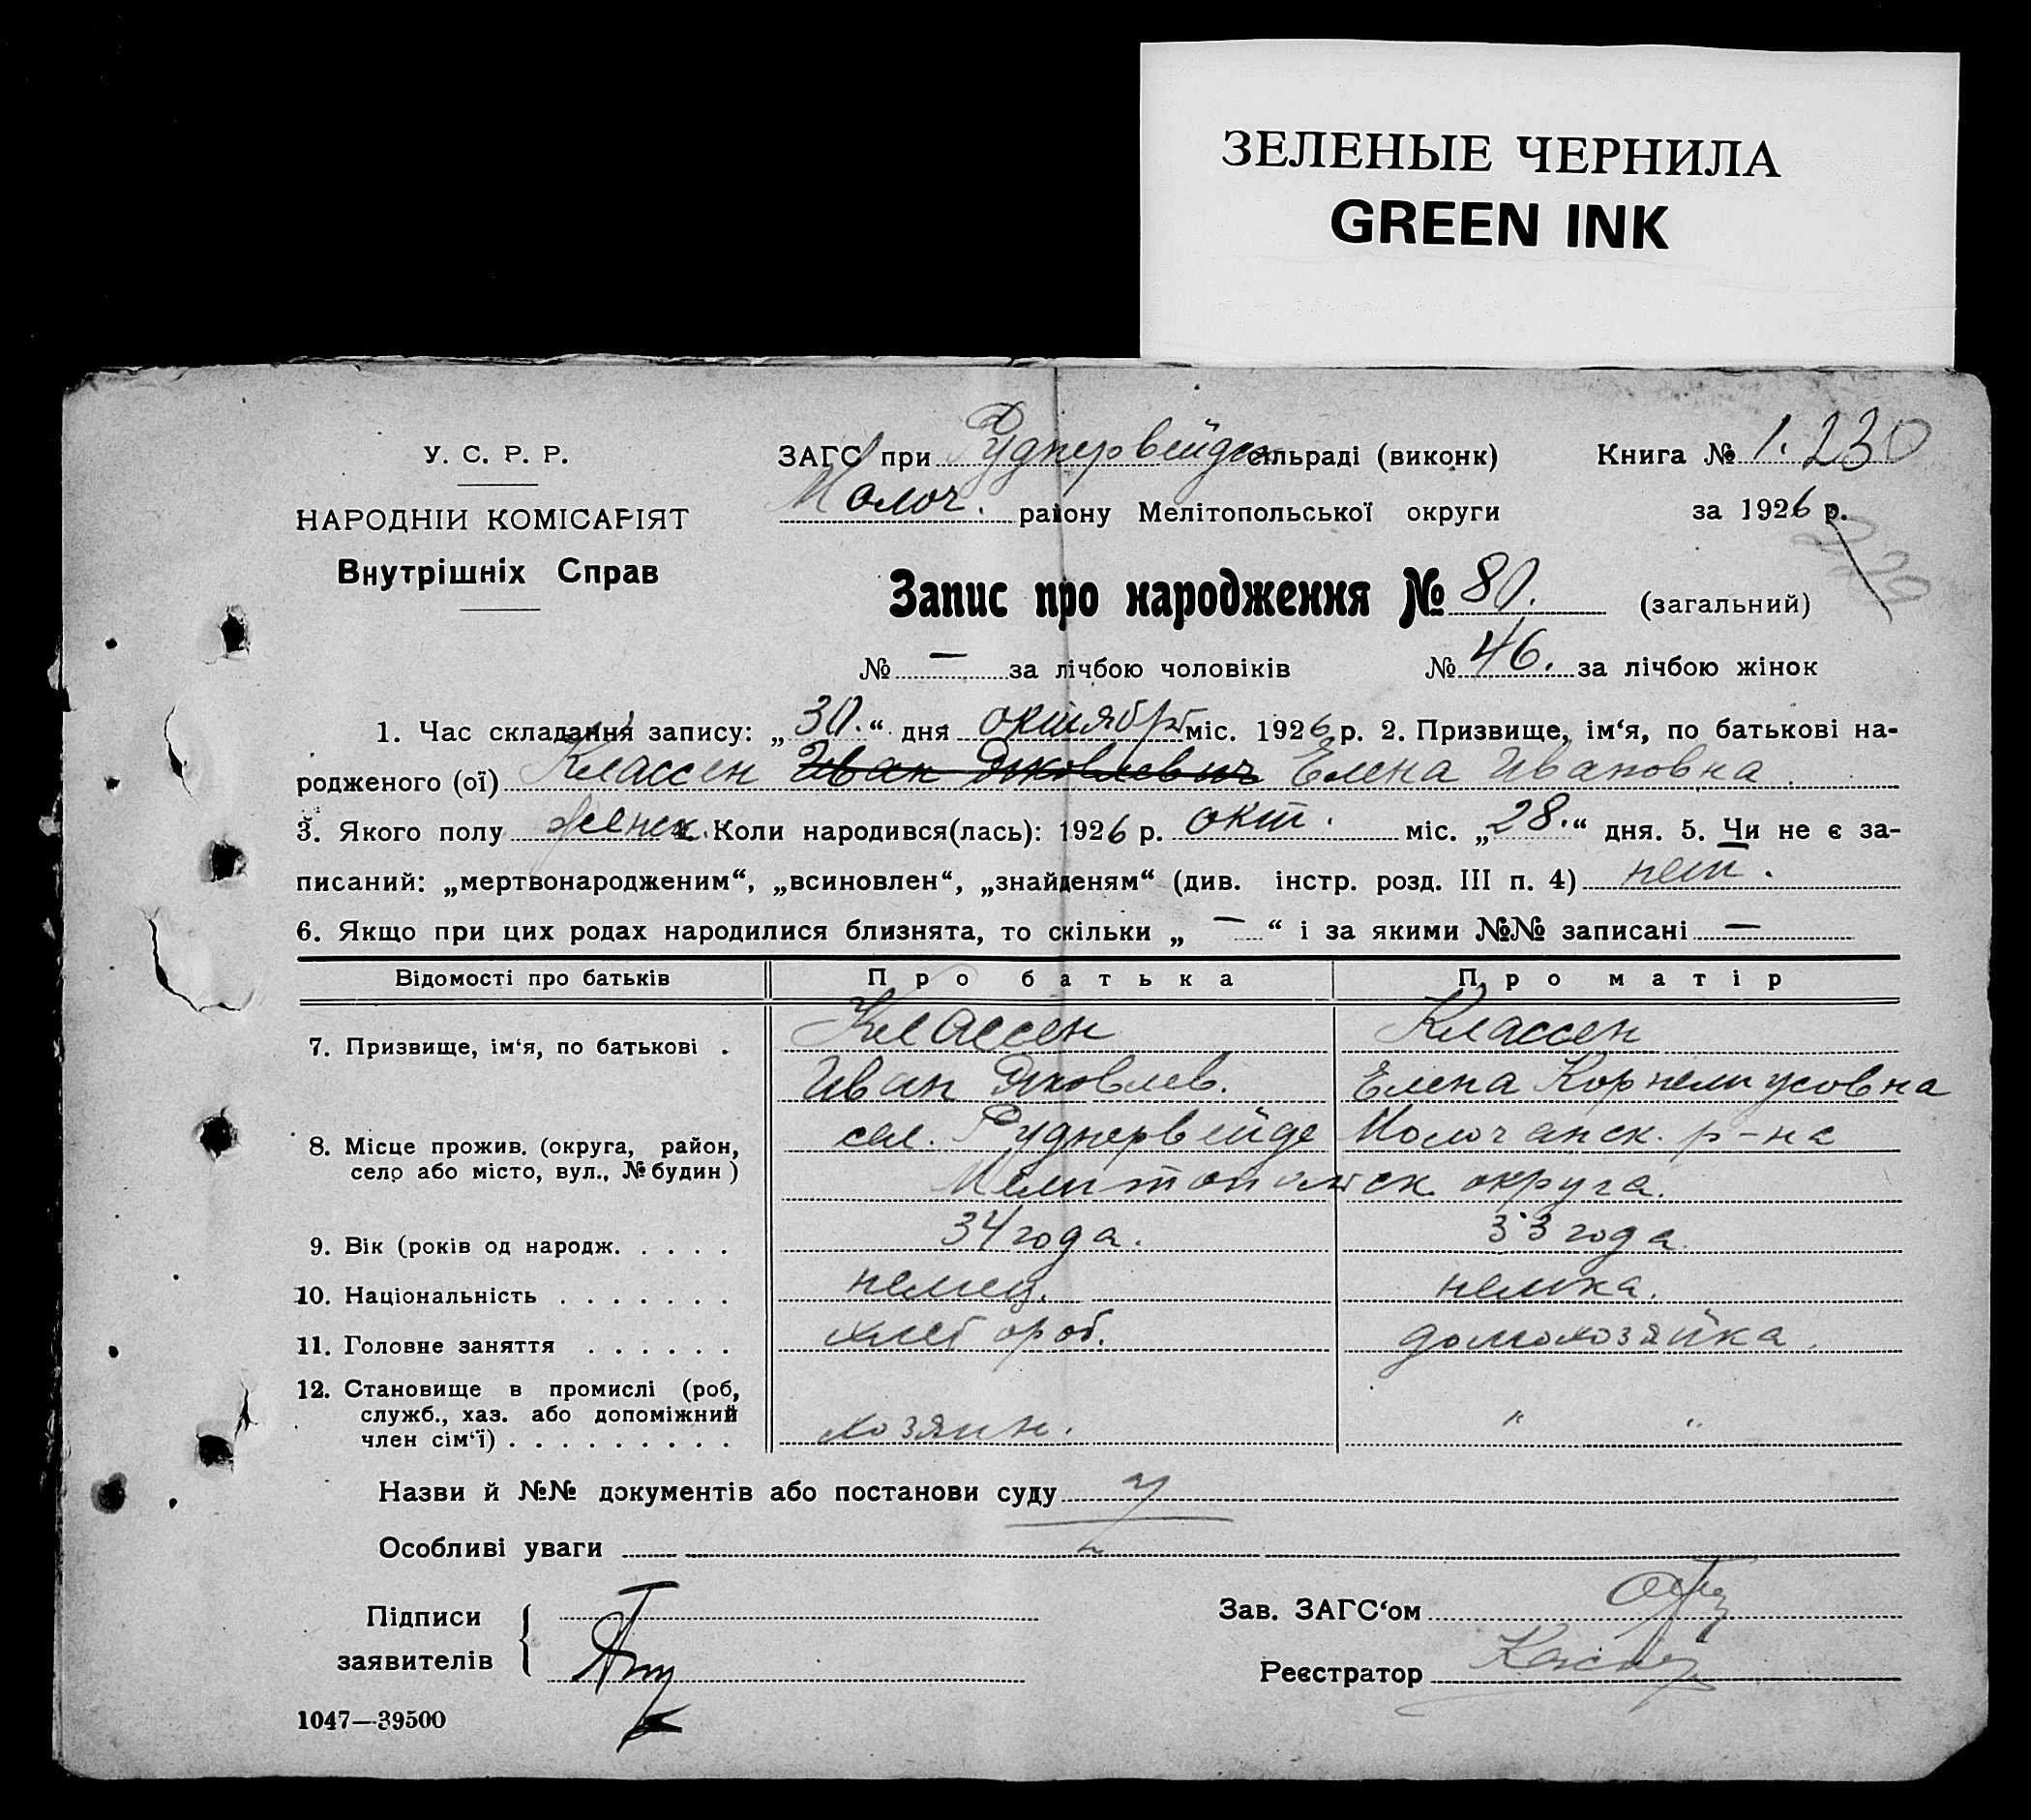 ЗЕЛЕНЫЕ ЧЕРНИЛА
GREEN INK
У. С. Р. Р.
НАРОДНІЙ КОМІСАРІЯТ
Внутрішніх Справ
ЗАГС при Руднервейден сільраді (виконк)
Книга № 1. 230
Молоч. району Мелітопольської округи
за 1926 р.
Запис про народження № 80. (загальний)
№ — за лічбою чоловіків № 46. за лічбою жінок
1. Час складання запису: „30.“ дня октября міс. 1926 р. 2. Призвище, ім‘я, по батькові на-
родженого (ої) Классен Иван Яковлевич Елена Ивановна.
3. Якого полу женск. 4. Коли народився(лась): 1926 р. окт. міс. „28.“ дня. 5. Чи не є за-
писаний: „мертвонародженим“, „всиновлен“, „знайденям“ (див. інстр. розд. III п. 4) нет.
6. Якщо при цих родах народилися близнята, то скільки „ — “ і за якими №№ записані —
Відомості про батьків Про батька Про матір
7. Призвище, ім‘я, по батькові . Классен Классен
Иван Яковлев. Елена Корнелиусовна
8. Місце прожив. (округа, район, сел. Руднервейде Молочанск. р-на
село або місто, вул., № будин) Мелитопольск округа.
9. Вік (років од народж. . . . . 34 года. 33 года.
10. Національність . . . . . . . немец. немка.
11. Головне заняття . . . . . . хлебороб. домохозяйка.
12. Становище в промислі (роб,
служб., хаз. або допоміжний
член сім‘ї) . . . . . . . . . хозяин. " "
Назви й №№ документів або постанови суду
Особливі уваги
Підписи
заявителів
Зав. ЗАГС‘ом
Реєстратор
1047—39500